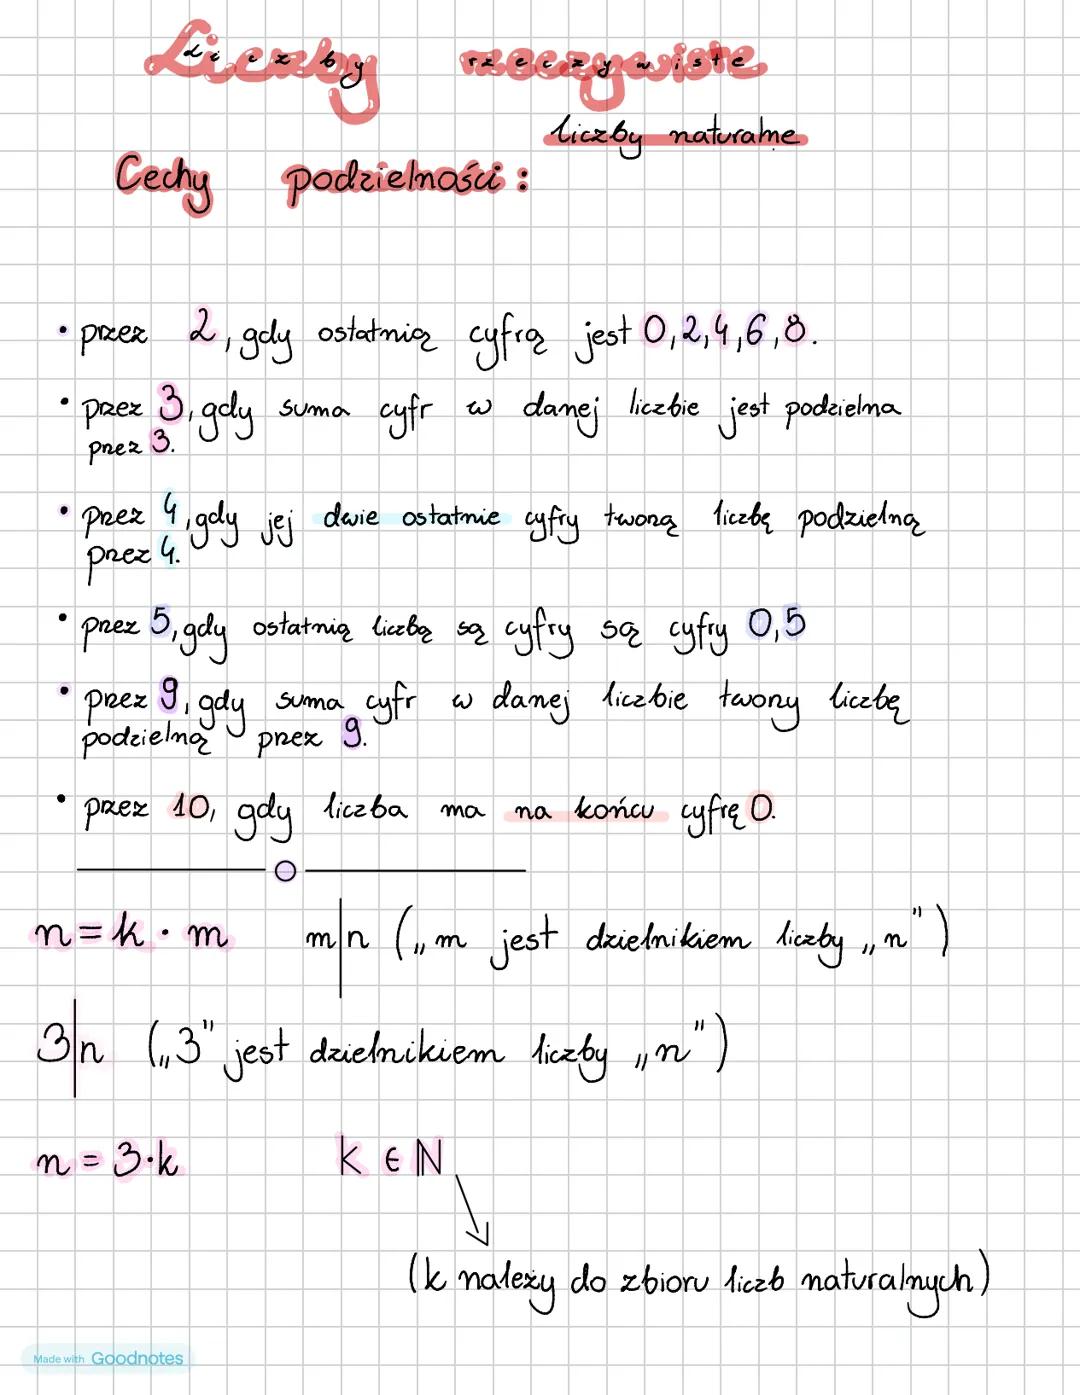 Liczby rzeczywiste
liczby naturalne
Cechy podzielności:
• przez 2, gdy ostatnią cyfrą jest 0,2,4,6,8.
• przez 3, gdy suma cyfr w danej liczbie jest podzielna
przez 3.
• przez 4, gdy jej dwie ostatnie cyfry tworzą liczbę podzielną
przez 4.
• przez 5, gdy ostatnią liczbą są cyfry są cyfry 0,5
• przez 9, gdy suma cyfr w danej liczbie tworzy liczbę
podzielną przez 9.
• przez 10, gdy liczba ma na końcu cyfrę 0.
n=k·m m|n („m jest dzielnikiem liczby „n")
3|n („3" jest dzielnikiem liczby „n")
n=3·k k∈ℕ
(k należy do zbioru liczb naturalnych)
Made with Goodnotes